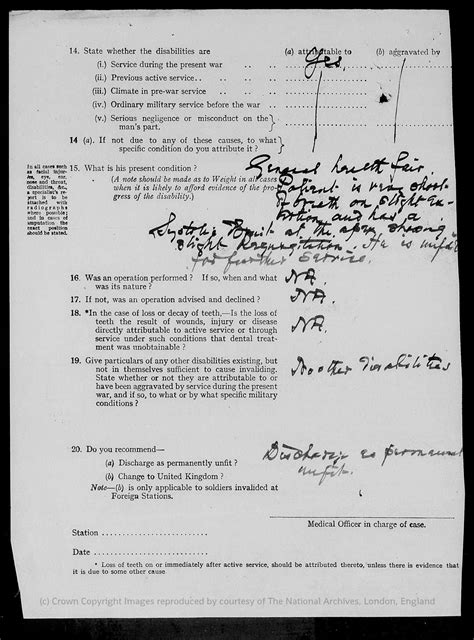 14. State whether the disabilities are (a) attributable to (b) aggravated by
(i.) Service during the present war .. .. Yes.
(ii.) Previous active service.. .. .. ..
(iii.) Climate in pre-war service .. ..
(iv.) Ordinary military service before the war ..
(v.) Serious negligence or misconduct on the
man's part.
14 (a). If not due to any of these causes, to what
specific condition do you attribute it ?
In all cases such
as facial injur-
ies, eye, ear,
nose and throat
disabilities, &c.,
a specialist's re-
port is to be
attached with
radiographs
where possible;
and in cases of
amputation the
exact position
should be stated.
15. What is his present condition ?
(A note should be made as to Weight in all cases
when it is likely to afford evidence of the pro-
gress of the disability.)
General health fair
Patient is very short
of breath on slight ex-
ertion and has a
Systolic Bruit at the apex, showing
slight Regurgitation. He is unfit
for further service.
16. Was an operation performed ? If so, when and what
was its nature ?
NA.
17. If not, was an operation advised and declined ?
NA.
18. *In the case of loss or decay of teeth,—Is the loss of
teeth the result of wounds, injury or disease
directly attributable to active service or through
service under such conditions that dental treat-
ment was unobtainable ?
NA.
19. Give particulars of any other disabilities existing, but
not in themselves sufficient to cause invaliding.
State whether or not they are attributable to or
have been aggravated by service during the present
war, and if so, to what or by what specific military
conditions ?
No other Disabilities
20. Do you recommend—
(a) Discharge as permanently unfit ?
(b) Change to United Kingdom ?
Note—(b) is only applicable to soldiers invalided at
Foreign Stations.
Discharge as permanent
unfit.
Medical Officer in charge of case.
Station
Date
* Loss of teeth on or immediately after active service, should be attributed thereto, unless there is evidence that
it is due to some other cause
(c) Crown Copyright Images reproduced by courtesy of The National Archives, London, England